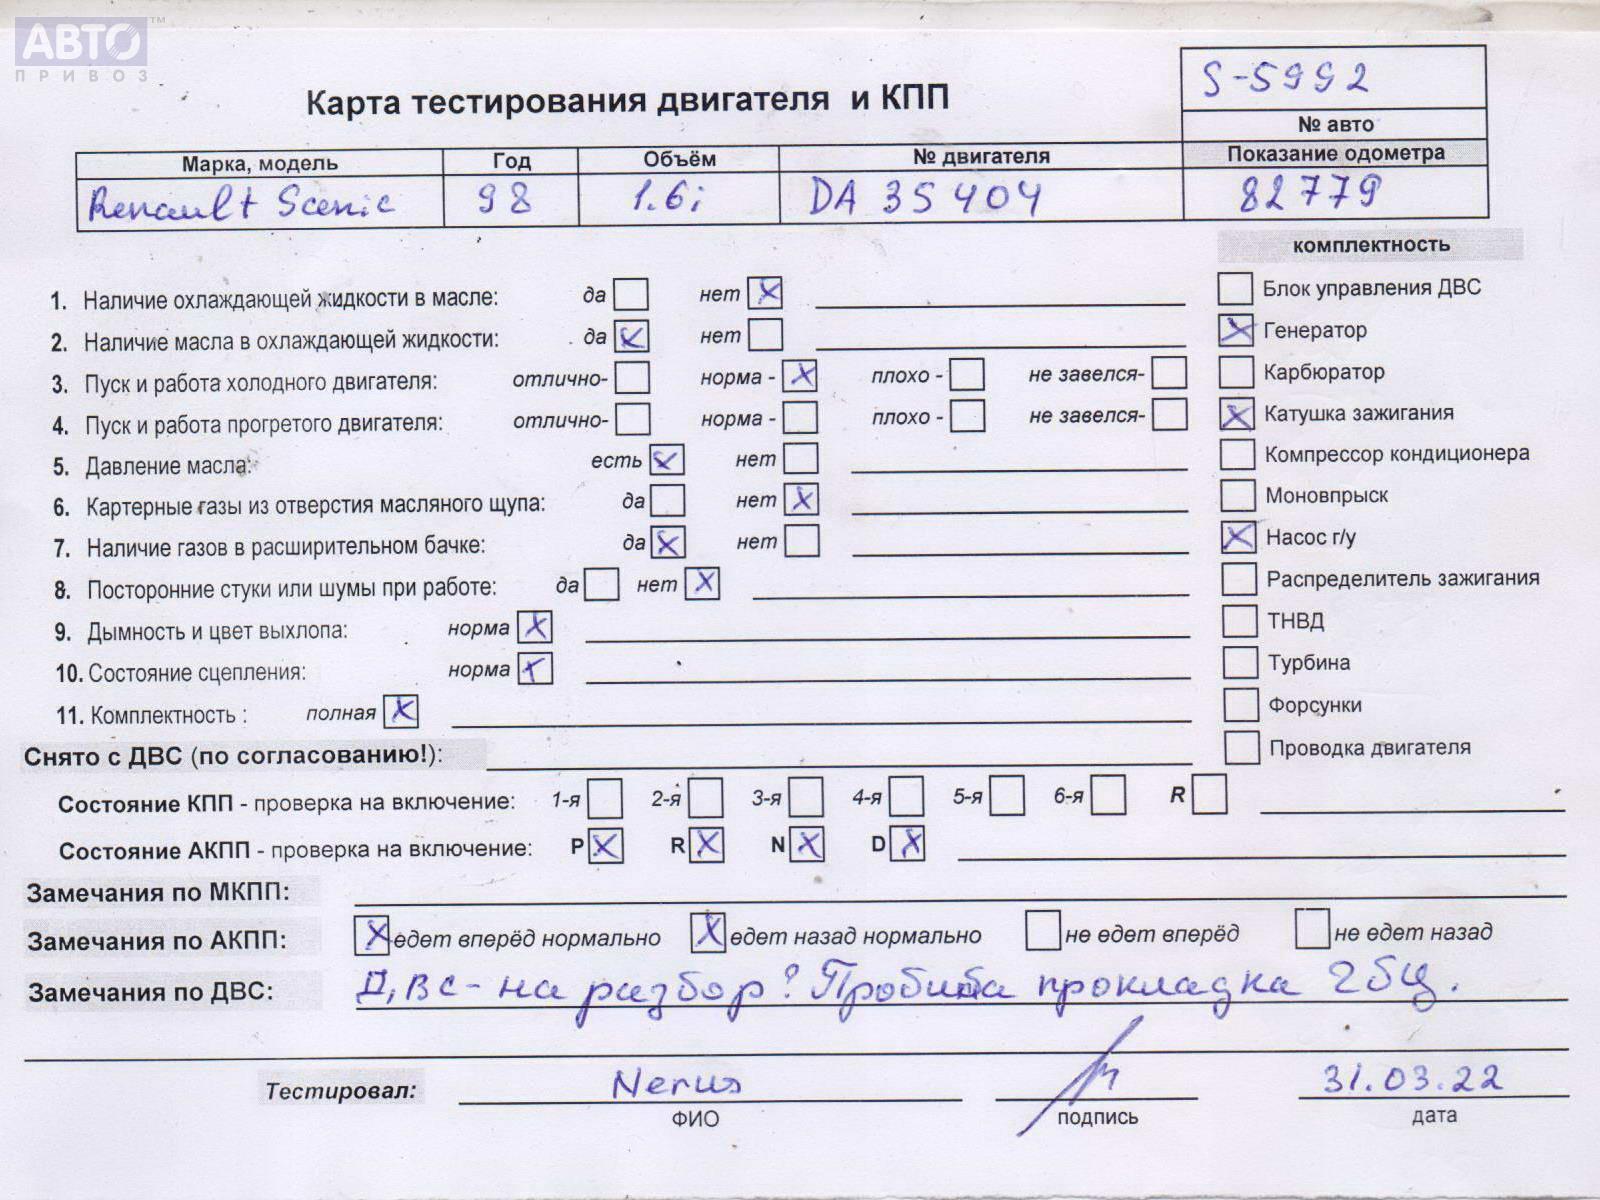 АВТО™
ПРИВОЗ
S-5992
Карта тестирования двигателя и КПП
№ авто
Марка, модель Год Объём № двигателя Показание одометра
Renault Scenic 98 1.6i DA 35404 82779
комплектность
1. Наличие охлаждающей жидкости в масле: да нет X Блок управления ДВС
2. Наличие масла в охлаждающей жидкости: да X нет X Генератор
3. Пуск и работа холодного двигателя: отлично- норма - X плохо - не завелся- Карбюратор
4. Пуск и работа прогретого двигателя: отлично- норма - плохо - не завелся- X Катушка зажигания
5. Давление масла: есть X нет Компрессор кондиционера
6. Картерные газы из отверстия масляного щупа: да нет X Моновпрыск
7. Наличие газов в расширительном бачке: да X нет X Насос г/у
8. Посторонние стуки или шумы при работе: да нет X Распределитель зажигания
9. Дымность и цвет выхлопа: норма X ТНВД
10. Состояние сцепления: норма X Турбина
11. Комплектность : полная X Форсунки
Снято с ДВС (по согласованию!): Проводка двигателя
Состояние КПП - проверка на включение: 1-я 2-я 3-я 4-я 5-я 6-я R
Состояние АКПП - проверка на включение: P X R X N X D X
Замечания по МКПП:
Замечания по АКПП: X едет вперёд нормально X едет назад нормально не едет вперёд не едет назад
Замечания по ДВС: ДВС - на разбор? Пробита прокладка гбц.
Тестировал: 31.03.22
ФИО подпись дата